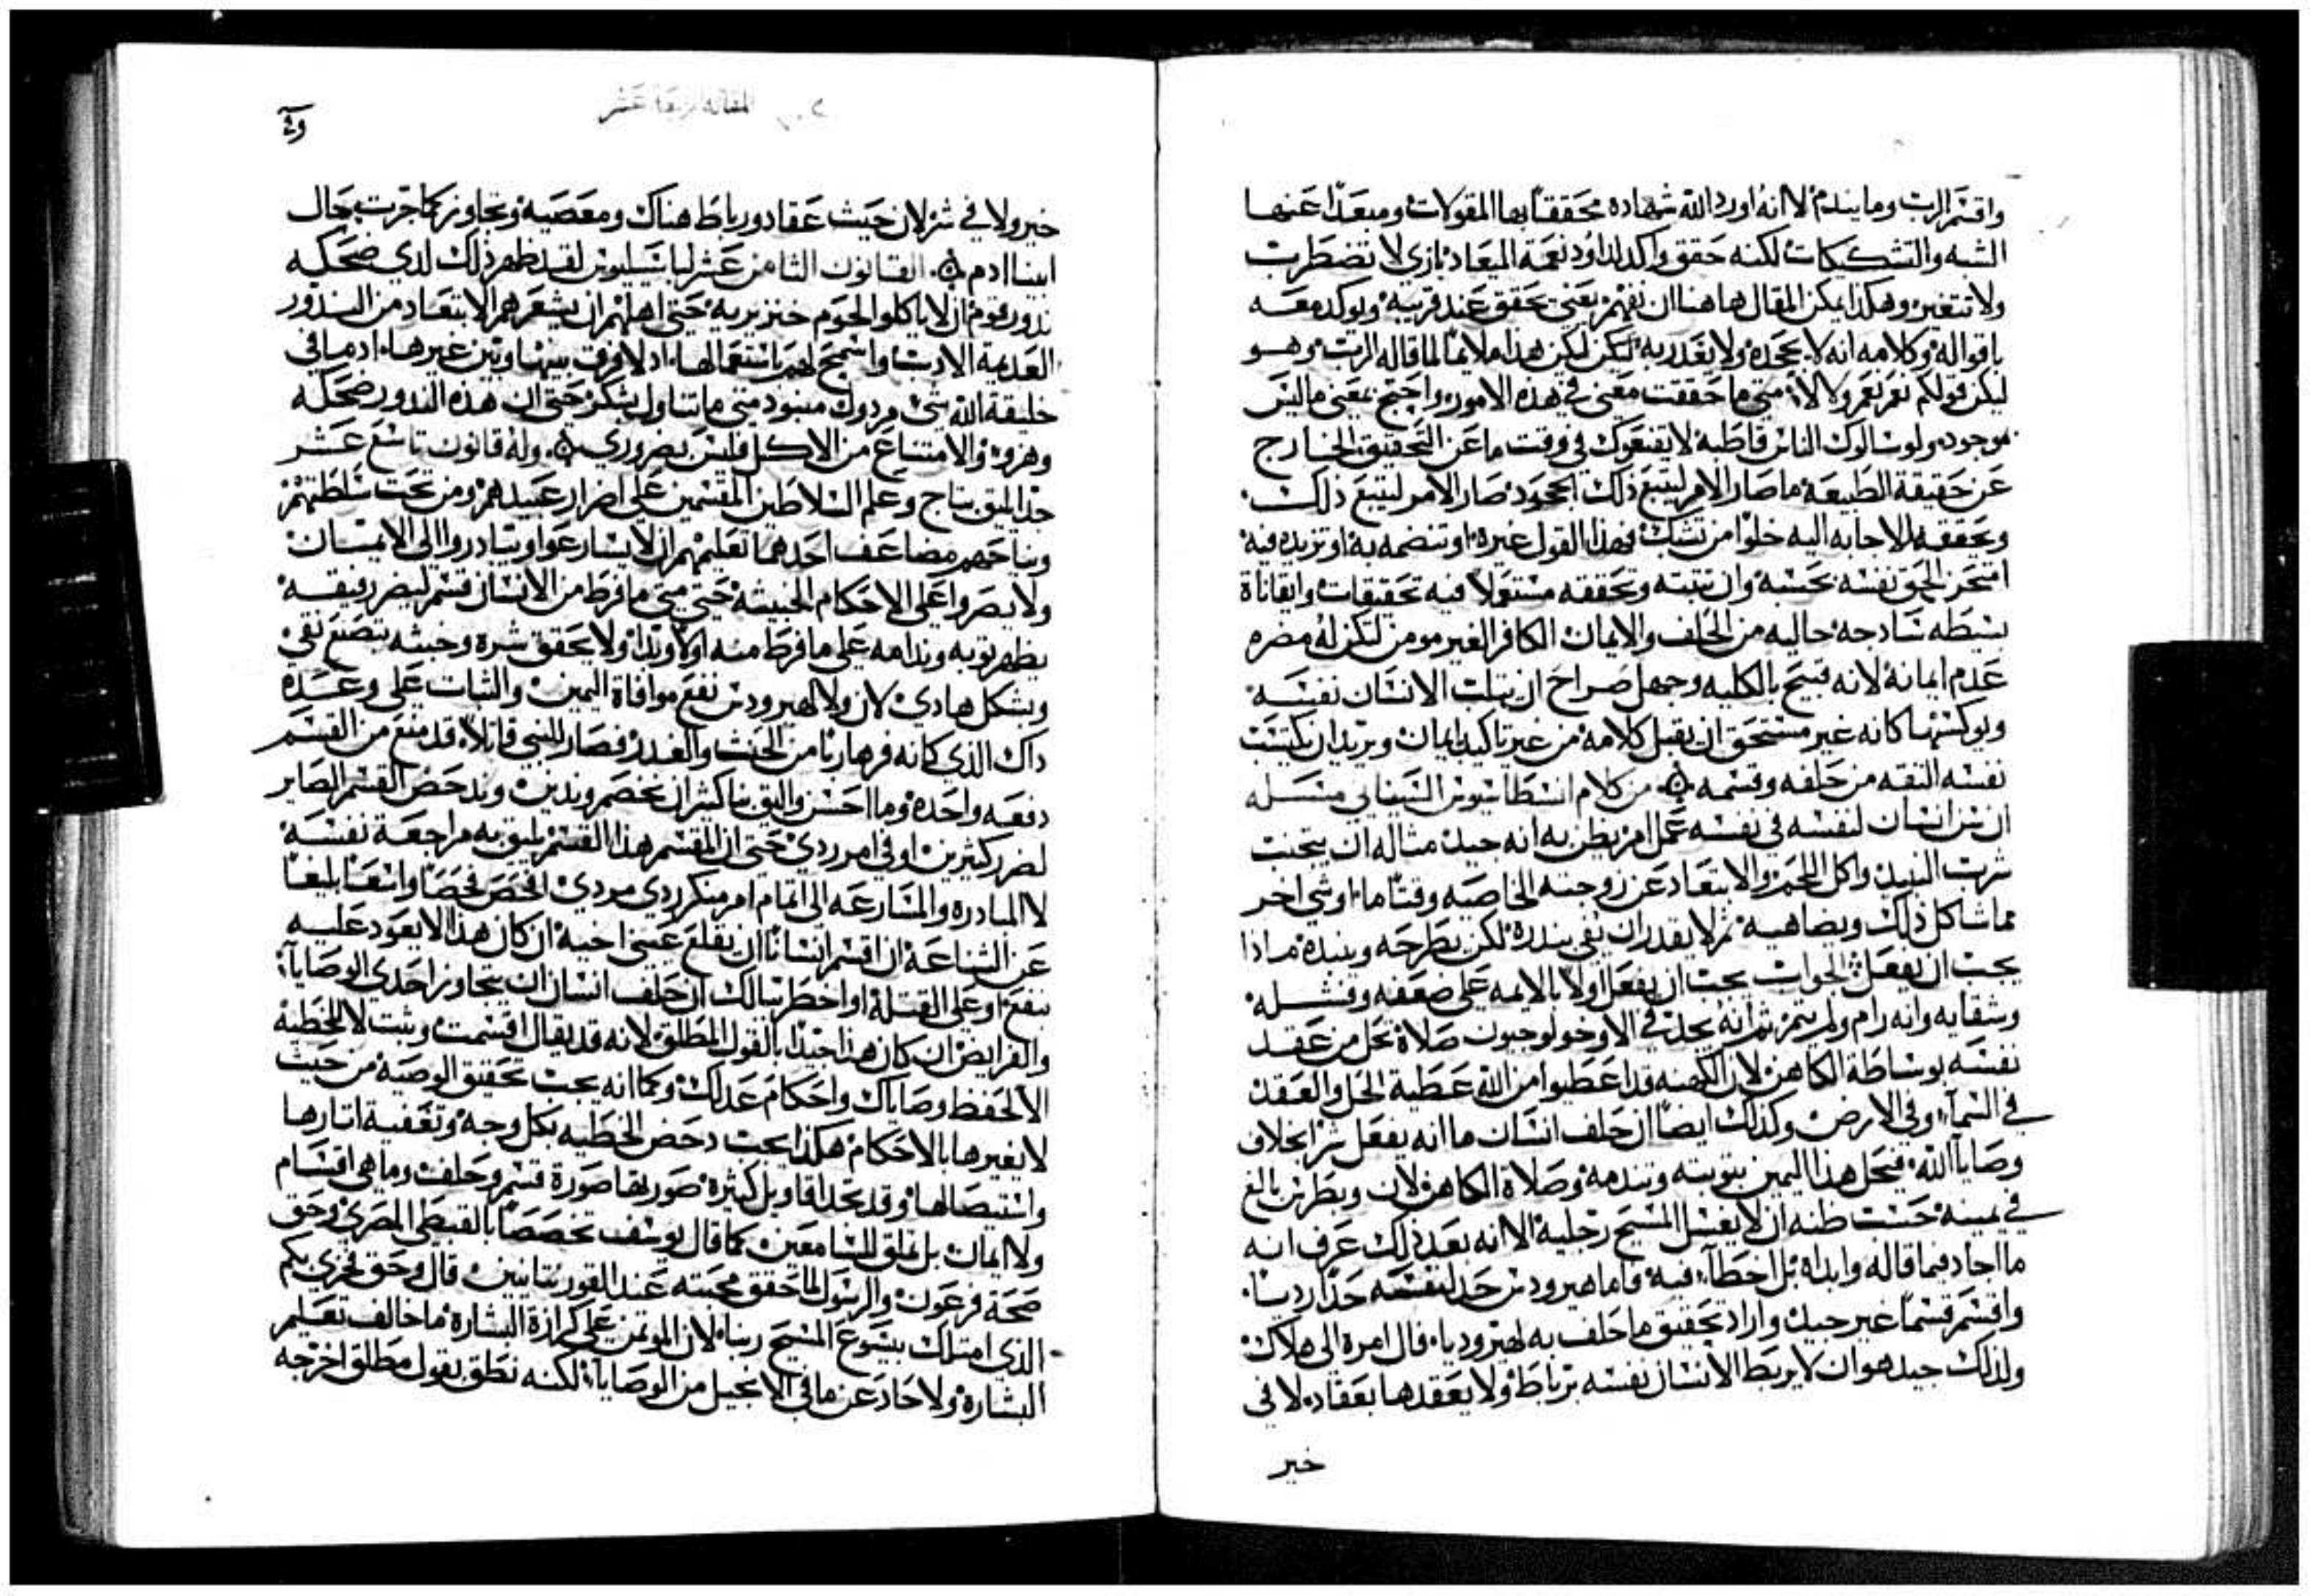 واقسم الرب وما يندم لا انه اورد الله شهاده محققا بها المقولات ومبعدا عنها
الشبه والتشكيكات لكنه حقق واكد لداوود نعمة الميعاد بازي لا تضطرب
ولا تتغير وهكذا يمكن المقال هاهنا ان نفهم يعني تحقق عند قريبه ويوكد معه
باقواله وكلامه انه لا يجحده ولا يغدر به لكن ليكن هذا ملايما لما قاله الرب وهو
ليكن قولكم نعم نعم ولا لا متى ما حققت معنى في هذه الامور واحتج بمعنى ما ليس
بموجود ولو سالوك الناس قاطبة لا يقنعوك في وقت ما عن التحقيق الخارج
عن حقيقة الطبيعة ما صار الامر ليتبع ذلك الجحود صار الامر ليتبع ذلك
وتحققه للاجابه اليه خلوا من تشكك فهذا القول غيره او تنضمه به او تزيده فيه
امتحن الحق نفسه بحسبه وان تثبته وتحققه مستعملا فيه تحقيقات وايقاناة
بسيطه سادجه خاليه من الحلف والايمان الكافر الغير مومن لتكن له مضره
عدم ايمانه لانه قبيح بالكليه وجهل صراح ان يثلب الانسان نفسه
ويوكسها كانه غير مستحق ان يقبل كلامه من غير تاكيد ايمان ويريد ان يكتسب
نفسه الثقه من حلفه وقسمه من كلام انسطاسيوس السينايي مسله
ان سن انسان لنفسه في نفسه عمل امر يظن به انه جيد مثاله ان يتجنب
شرب النبيد واكل اللحم والابتعاد عن زوجته الخاصيه وقتا ما او شي اخر
مما شاكل ذلك ويضاهيه ثم لا يقدر ان يفي بندره لكن يطرحه وينبده مادا
يجب ان يفعل الجواب يجب ان يفعل اولا بالايمه على ضعفه وفشله
وشقايه وانه رام ولم يتم ثم انه يجد في الاوخولوجيون صلاة تحل من عقد
نفسه بوساطة الكاهن لان الكهنه قد اعطيوا من الله عطية الحل والعقد
في السمآء وفي الارض وكذلك ايضا ان حلف انسان ما انه يفعل شر بخلاف
وصايا الله فيحل هذا اليمين بتوبته وتندمه وصلاة الكاهن لان وبطرس بالغ
في يمينه حسب ظنه ان لا يغسل المسيح رجليه الا انه بعد ذلك عرف انه
ما اجاد فيما قاله وابداه بل اخطآء فيه فاما هيرودس حد لنفسه حدا رديا
واقسم قسما غير جيد واراد تحقيق ما حلف به لهيروديا فال امره الى هلاك
ولذلك جيد هو ان لا يربط الانسان نفسه برباط ولا يعقدها بعقاد لا في
خير
المقاله الرابعة عشر
خير ولا في شر لان حيث عقاد ورباط هناك ومعصيه وتجاوز كما جرت بحال
ابينا ادم القانون الثامن عشر لباسيليوس لقد يظهر ذلك لدي ضحكه
ندور قوم ان لا ياكلوا لحوم خنزيريه حتى اهلهم ان يشعرهم الابتعاد من الندور
العديمة الادب واسمح لهم باستعمالها اد لا فرق بينها وبين غيرها اد ما في
خليقة الله شي مردول منبود متى ما تناول بشكر حتى ان هذه الندور ضحكه
وهزوه والامتناع من الاكل فليس بضروري وله قانون تاسع عشر
جدا يليق بتاج وعلم السلاطين المقسمين على اضرار عبيدهم ومن تحت سلطتهم
مضاعف احدهما تعليمهم ان لا يسارعوا ويبادروا الى الايمان
ولا يصروا على الاحكام الخبيثه حتى متى ما فرط من الانسان قسم ليضر رفيقه
يظهر توبه وندامه على ما فرط منه اولا وبدا ولا يحقق شره وخبثه بتصنع نقي
وبشكل هادي لان ولا لهيرودس نفع موافاة اليمين والثبات على وعده
داك الذي كانه فر هاربا من الحنث والغدر فصار للنبي قاتلا قد منع من القسم
دفعه واحده وما احسن واليق بنا كثيرا ان نخصم وندين وندحض القسم الصاير
لضرر كثيرين او في امر ردي حتى ان المقسم هذا القسم يليق به مراجعة نفسه
لا المبادره والمسارعه الى اتمام امر منكر ردي مردي افحص فحصا واسعا بليغا
عن الشناعه ان اقسم انسانا ان يقلع عيني اخيه ان كان هذا لا يعود عليه
بنفع او على القتله او اخطر ببالك ان حلف انسان ان يتجاوز احدى الوصايا
والفرايض ان كان هذا جيدا بالقول المطلق لانه قد يقال اقسمت وثبت لا للخطيه
الا لحفظ وصاياك واحكام عدلك وكما انه يجب تحقيق الوصيه من حيث
لا نغيرها بالاحكام هكذا يجب دحض الخطيه بكل وجه وتعفية اتارها
واستيصالها وقد تجد اقاويل كثيره صورتها صورة قسم وحلف وما هي اقسام
ولا ايمان بل تملق للسامعين كما قال يوسف تخصصا بالقبطي المصري وحق
صحة فرعون والرسول لما حقق محبته عند القورنتانيين قال وحق فخري بكم
الذي امتلك بيسوع المسيح ربنا لان الموتمن على كرازة البشاره ما خالف تعليم
البشاره ولا حاد عن ما في الانجيل من الوصايا لكنه نطق بقول مطلق اخرجه